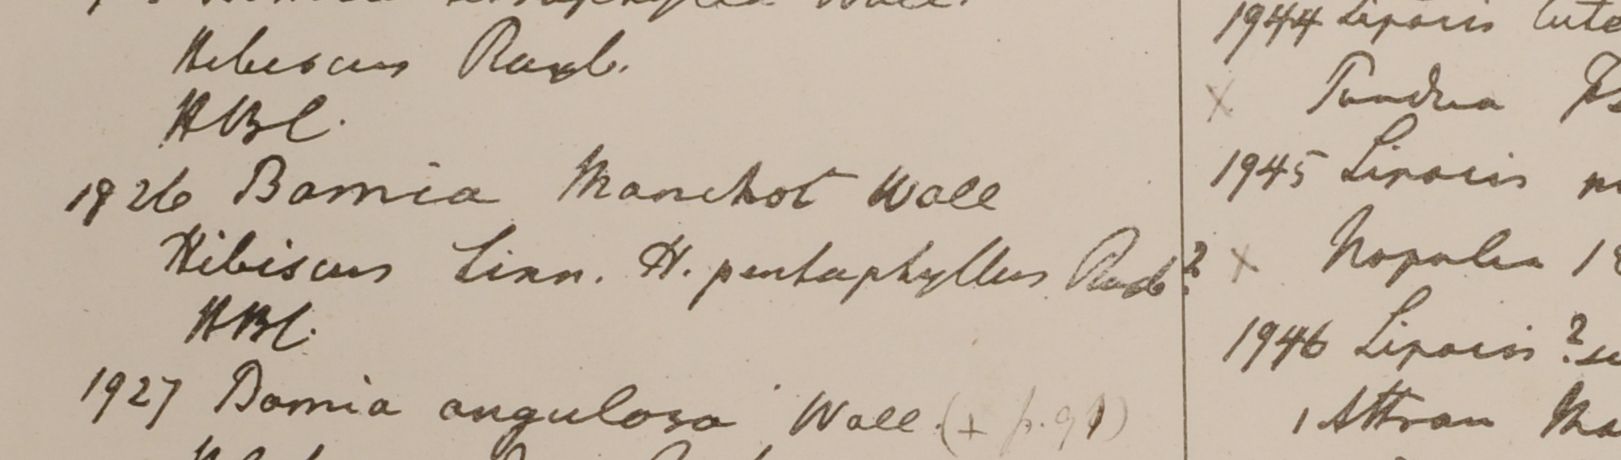 Wall.
Hibiscus Roxb.
HBC.
1926 Bamia Manchot Wall
Hibiscus Linn. H. pentaphyllus Roxb?
HBC.
1927 Bamia angulosa Wall. (+ p. 91)
1944 Liparis lute
x Tundua
1945 Liparis
x Nopalea 18
1946 Liparis ?
1 Attran Ma